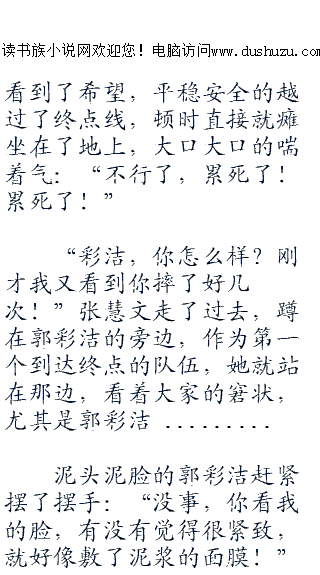 读书族小说网欢迎您！电脑访问www.dushuzu.com
看到了希望，平稳安全的越
过了终点线，顿时直接就瘫
坐在了地上，大口大口的喘
着气：“不行了，累死了！
累死了！”
“彩洁，你怎么样？刚
才我又看到你摔了好几
次！”张慧文走了过去，蹲
在郭彩洁的旁边，作为第一
个到达终点的队伍，她就站
在那边，看着大家的窘状，
尤其是郭彩洁 .........
泥头泥脸的郭彩洁赶紧
摆了摆手：“没事，你看我
的脸，有没有觉得很紧致，
就好像敷了泥浆的面膜！”